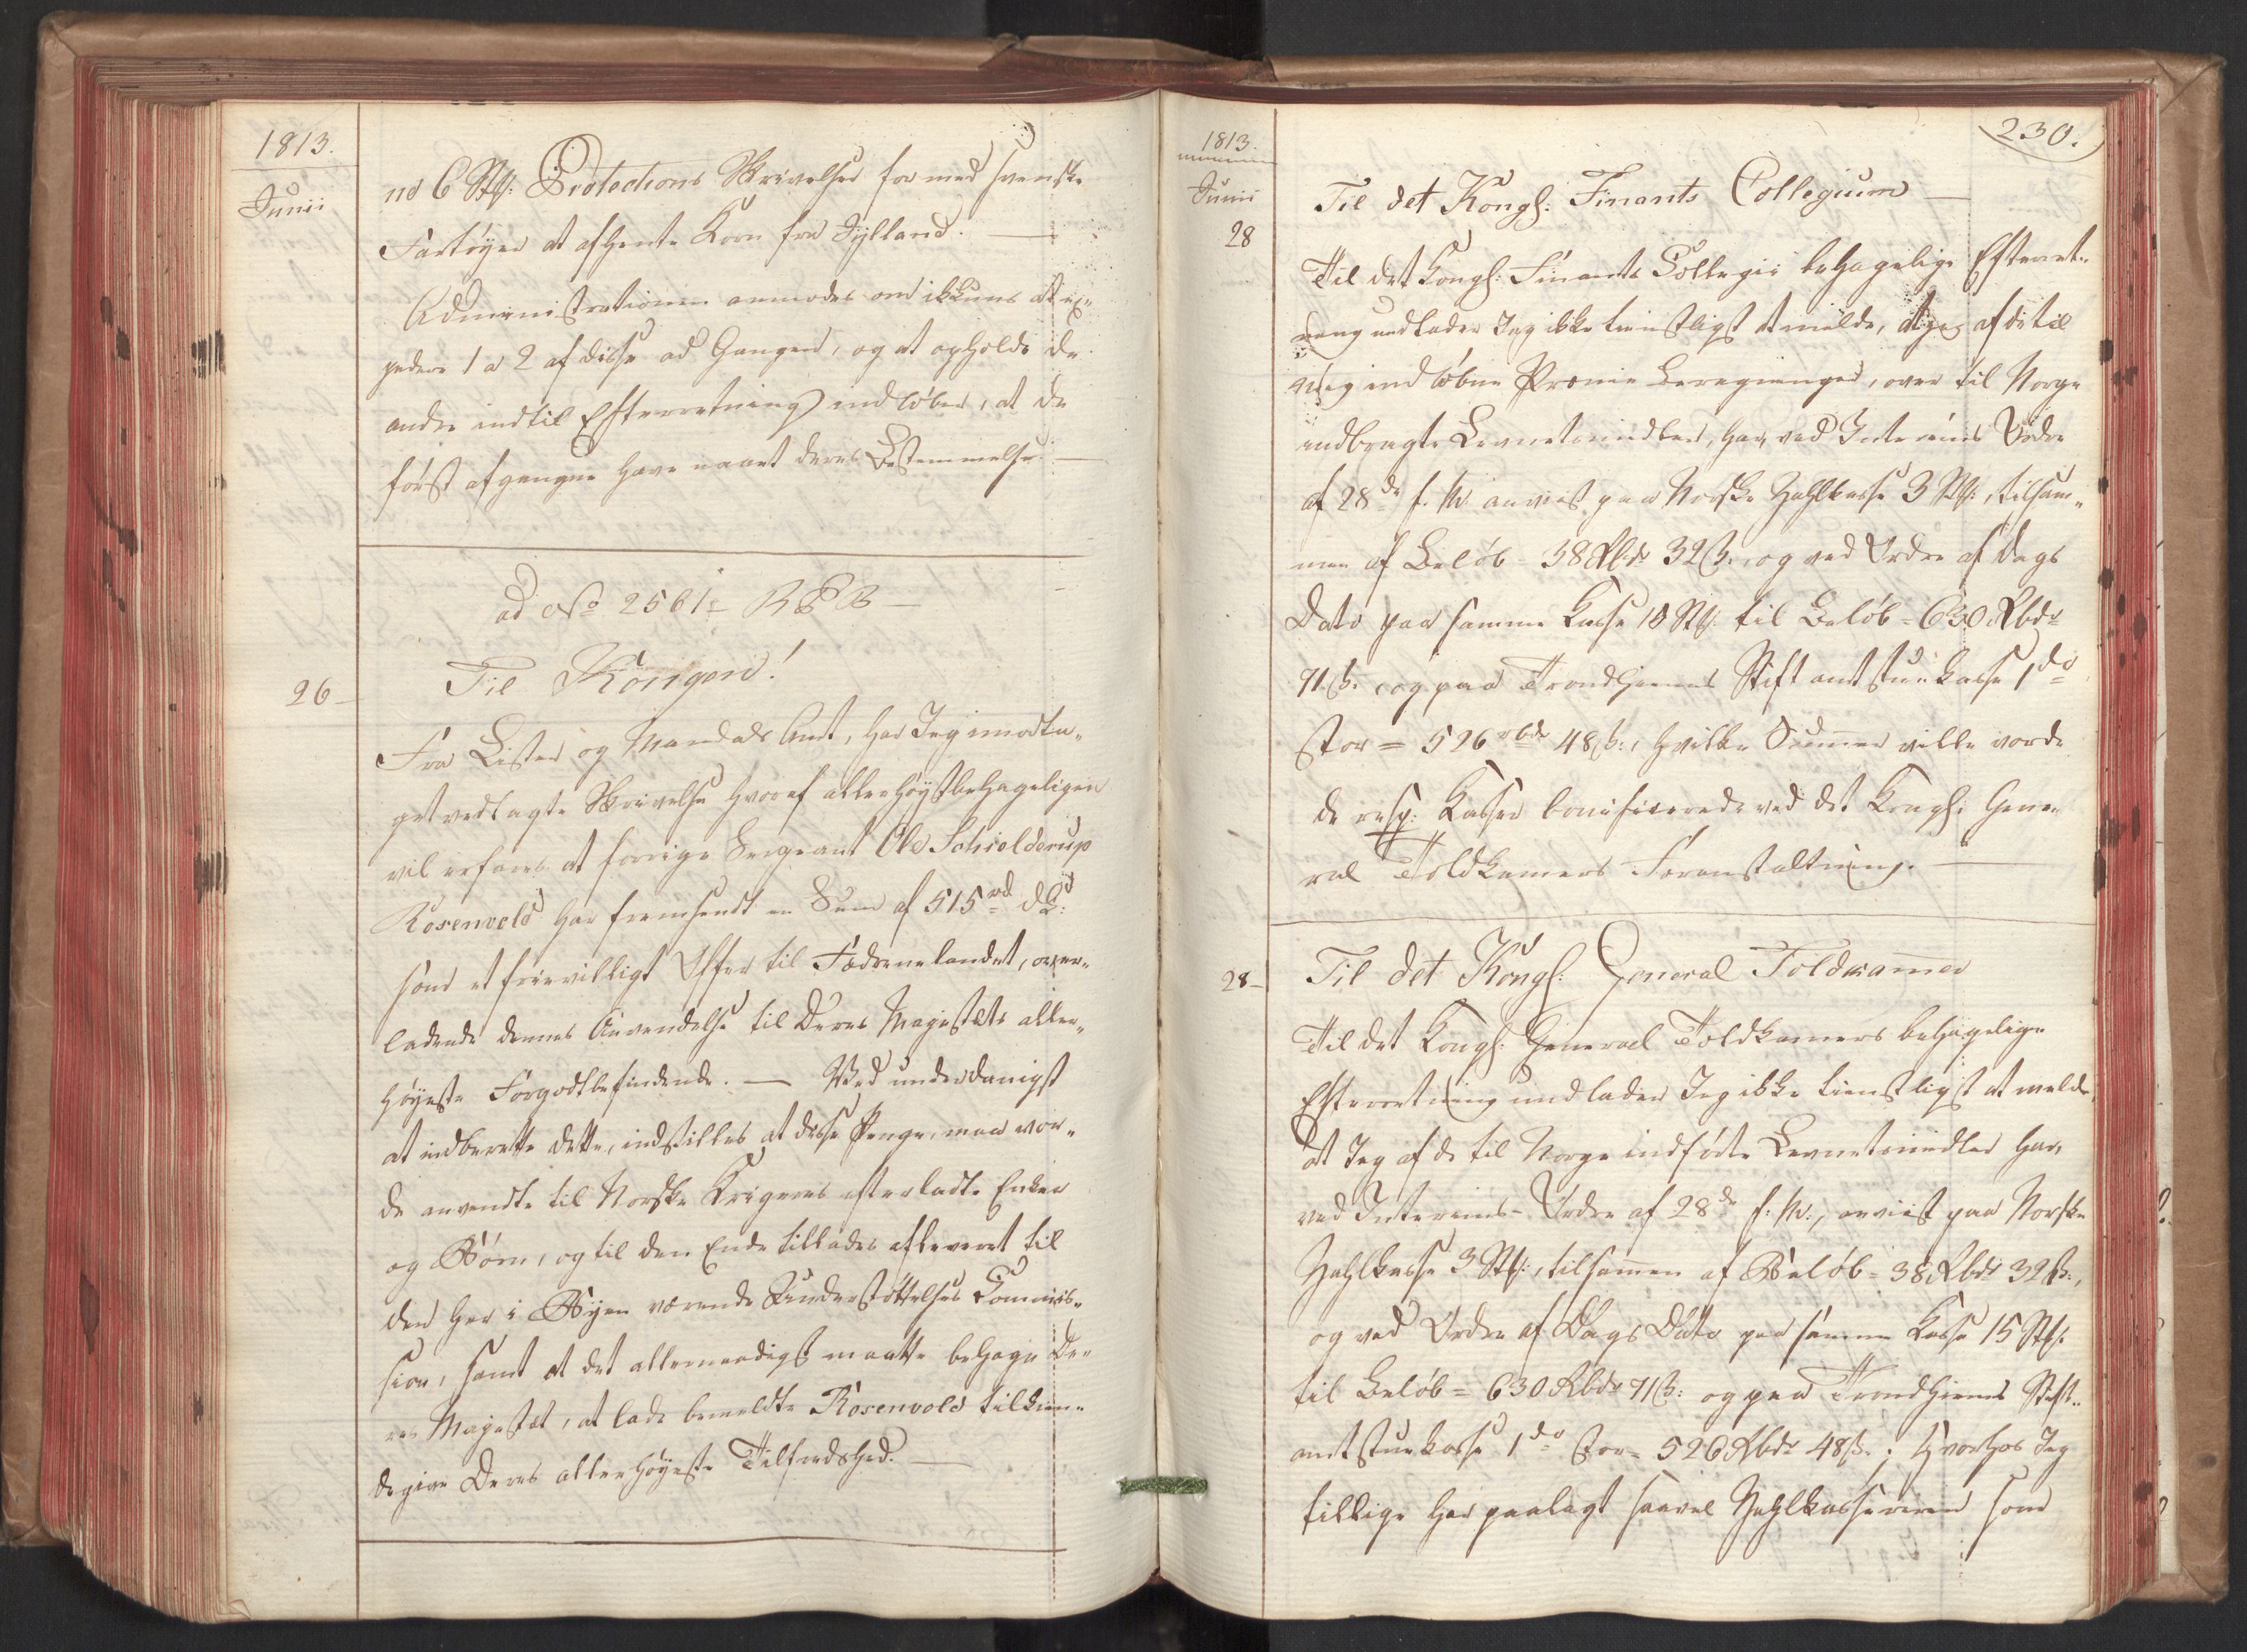 1813.
Junii
nd 6 Stk: Protections Skrivelser for med svenske
Fartøyer at afhente Korn fra Jylland. —
Administrationen anmodes om ikkuns at ex-
pedere 1 a 2 af disse ad Gangen, og at opholde de
andre indtil Efterretning indløber, at de
først afgangne have naaet deres Bestemmelse. —
ad No 2561 =
26 —
Til Kongen!
Fra Lister og Mandals Amt, har Jeg imodta-
get vedlagte Skrivelse hvoraf allerhøystbehageligen
vil erfares at forrige Sergeant Ole Schielderup
Rosenvold har fremsendt en Sum af 515 rd DC:
som et frievilligt Offer til Fædrenelandet, over-
ladende dennes Anvendelse til Deres Majestæts aller-
høyeste Forgodtbefindende. — Ved underdanigst
at indberette dette, indstilles at disse Penge, maa vor-
de anvendte til Norske Krigeres efterladte Enker
og Børn, og til den Ende tillades afleveret til
den her i Byen værende Understøttelses Commis-
sion, samt at det allernaadigst maatte behage De-
res Majestæt, at lade bemeldte Rosenvold tilkien-
degive Deres allerhøyeste Tilfredshed. —
1813.
230.
Junii
28
Til det Kongl: Finants Collegium —
Til det Kongl: Finants Collegii behagelige Efterret-
ning undlader Jeg ikke tienstligst at melde, at jeg af de til
mig indløbne Præmie Beregninger, over til Norge
indbragte Levnetsmidler, har, ved Interims Ordre
af 28de f. M. anviist paa Norske Zahlkasse 3 Stk:, tilsam-
men af Beløb = 38 Rbdr 32 ß:, og ved Ordre af Dags
Dato paa samme Kasse 15 Stk: til Beløb = 630 Rbdr
71 ß: og paa Trondhiems Stiftamtstuekasse 1 do
stor = 526 rbdr 48 ß:, hvilke Summer ville vorde
de resp: Kasser bonificerede ved det Kongl: Gene-
ral Toldkamers Foranstaltning. —
28 —
Til det Kongl: General Toldkammer
Til det Kongl: General Toldkamers behagelige
Efterretning undlader Jeg ikke tienstligst at melde,
at Jeg af de til Norge indførte Levnetsmidler har,
ved Interims-Ordre af 28de f: M:, anviist paa Norske
Zahlkasse 3 Stk:, tilsammen af Beløb = 38 Rbdr 32 ß:,
og ved Ordre af Dags Dato paa samme Kasse 15 Stk:
til Beløb = 630 Rbdr 71 ß: og paa Trondhiems Stift-
amtstuekasse 1 do stor = 526 Rbdr 48 ß:; hvorhos Jeg
tillige har paalagt saavel Zahlkassereren som